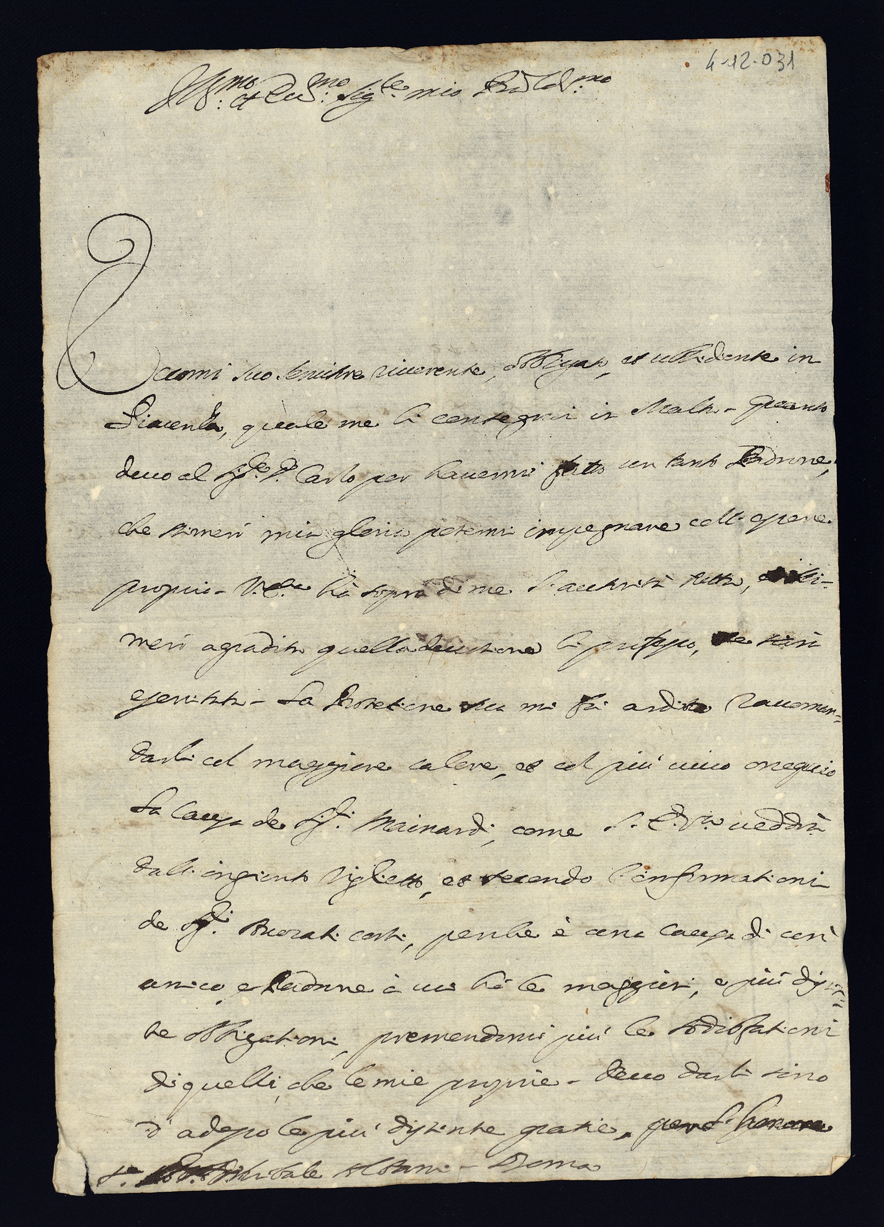 4-12-031
Ill.mo et Ecc.mo Sig.re mio P.ron Col.mo
Eccomi suo servitore riverente, obbligato, et ubbidiente in
Piacenza, quale me li consegnai in Malta - quanto
devo al Sig.re D. Carlo per havermi fatto un tanto Padrone,
che stimerò mia gloria potermi impegnare coll'opere
proprie - V.E. hà sopra di me l'autorità tutta, e sti-
merò agradita quella devotione li professo, se sarò
esercitata - La Protetione sua mi fà ardito raccoman-
darli col maggiore calore, et col più vivo ossequio
La causa de Sig.ri Mainardi, come V.E. vedrà
dall'ingionto Viglietto, et secondo l'informationi
de Sig.ri, perche è una causa di così
amico, e Padrone à cui hò le maggiori, e più distin-
te obligationi, premendomi più le sodisfationi
di quelli, che le mie proprie - Devo darli sino
d'adesso le più distinte gratie, per l'honore
Annibale Albani - Roma